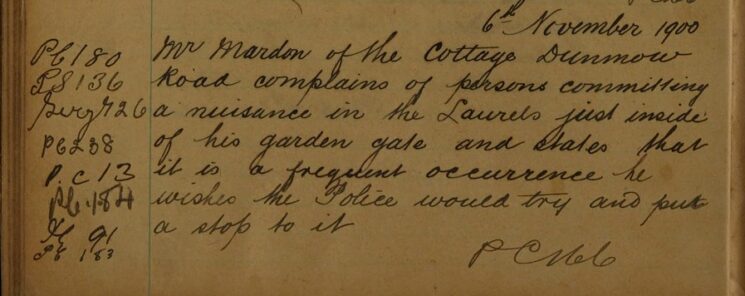 6th November 1900
PC 180
Mr Mardon of the Cottage Dunmow
PS 136
Road complains of persons committing
Sergt 26
a nuisance in the Laurels just inside
PC 238
of his garden gate and states that
P.C 13
it is a frequent occurrence he
PC 184
wishes the Police would try and put
91
a stop to it
183